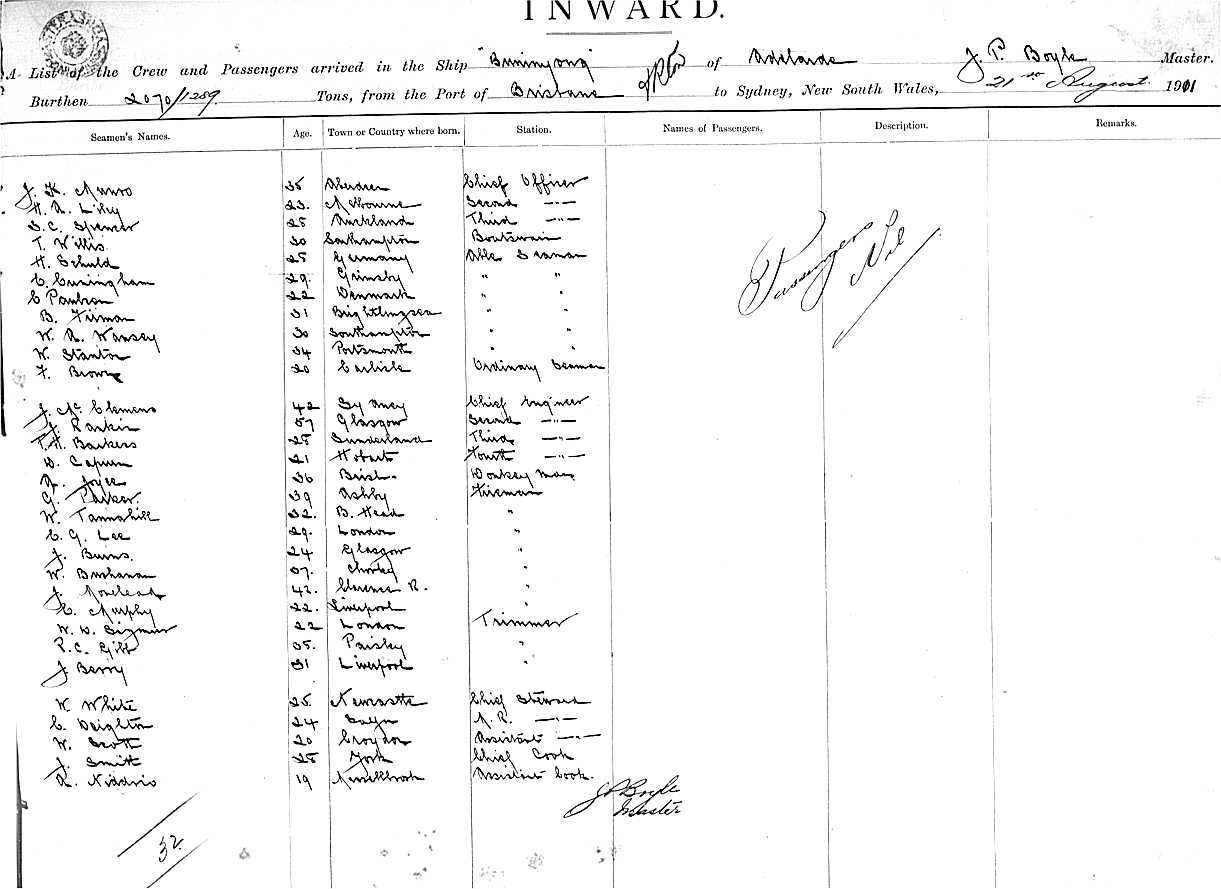 INWARD.
A List of the Crew and Passengers arrived in the Ship "Buninyong" of Adelaide J. P. Boyle Master.
Burthen 2070/1289 Tons, from the Port of Brisbane to Sydney, New South Wales, 21st August 1901
Seamen's Names. Age. Town or Country where born. Station. Names of Passengers. Description. Remarks.
J. K. Munro 35 Aberdeen Chief Officer
H. A. Lilley 23. Melbourne Second —"—
S. C. Spencer 25 Auckland Third —"—
T. Willis. 30 Southampton Boatswain
H. Schuld 25 Germany Able Seaman
C. Cuningham 29. Grimsby " "
C Paulson 22 Denmark " "
B. Firman 31 Brightlingsea " "
W. A. Wansey 30 Southampton " "
W. Stanton 34 Portsmouth " "
F. Brown 20 Carlisle Ordinary Seaman
Passengers Nil
J. Mc Clemens 42 Sydney Chief Engineer
J. Rankin 57 Glasgow Second —"—
T. H. Barkers 25 Sunderland Third —"—
D. 21 Hobart Fourth —"—
A. Joyce 36 Donkey man
G. Parker. 39 Ashby Fireman
W. Tannahill 32. B. Head "
C. G. Lee 29. London "
J. Burns. 24 Glasgow "
W. Buchanan 37. Chorley "
J. 42. Clarence R. "
C. Murphy 22. Liverpool "
W. D. 22 London Trimmer
R. C. Gibb 35. Paisley "
J Berry 31 Liverpool "
W. White 25. Newcastle Chief Steward
C. Deighton 24 —"—
W. Scott 20 Croydon Assistant —"—
J. Smith 25 York Chief Cook
A. Niddrie 19 Assistant Cook.
J P Boyle
Master
32